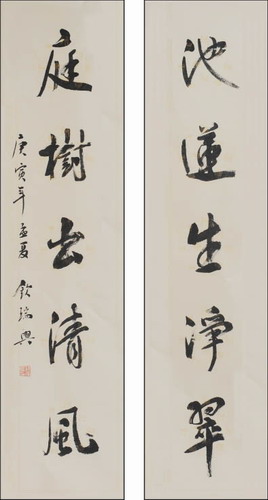 池蓮生淨翠
庭樹出清風
庚寅年孟夏 欽瑞興